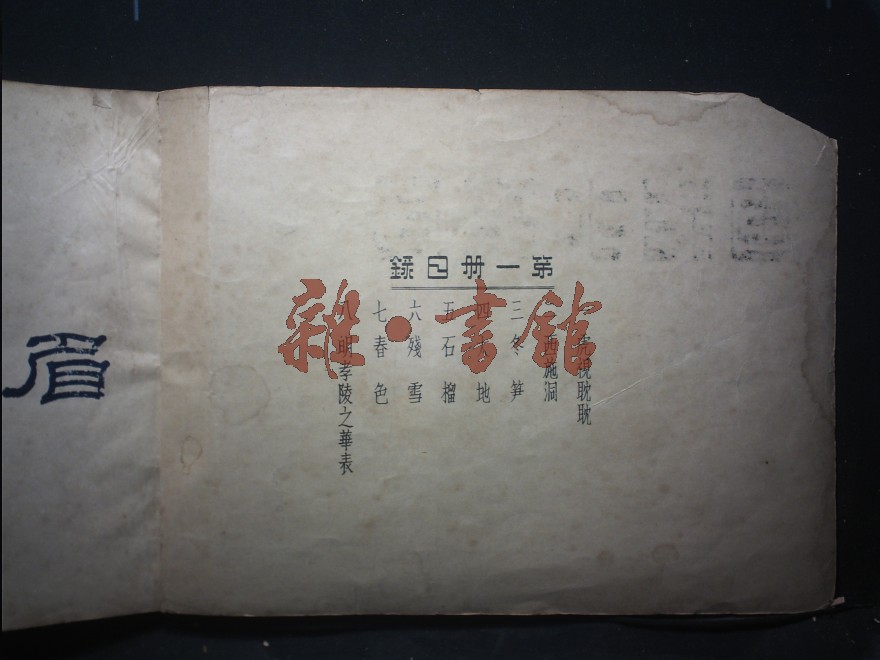 第一册目錄
虎視耽耽
西施洞
三 冬笋
四 地
五 石榴
六 殘雪
七 春色
八 明孝陵之華表
雜·書館
眉